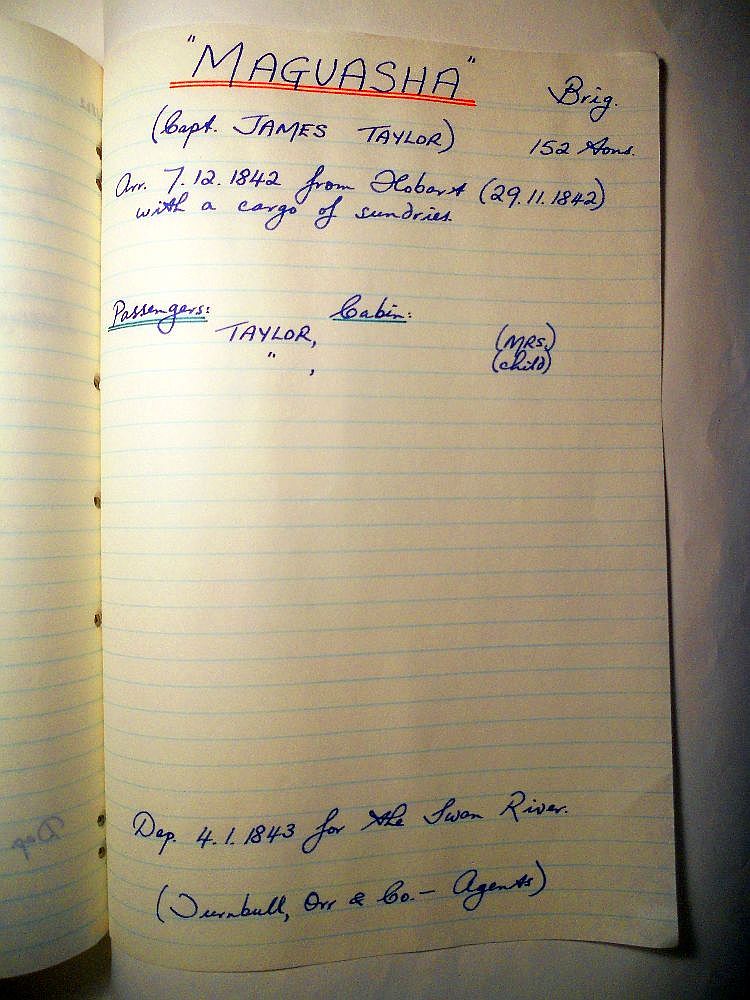 "MAGUASHA" Brig.
(Capt. JAMES TAYLOR) 152 tons.
Arr. 7.12.1842 from Hobart (29.11.1842)
with a cargo of sundries.
Passengers: Cabin:
TAYLOR, (MRS.)
" , (child)
Dep. 4.1.1843 for the Swan River.
(Turnbull, Orr & Co. – Agents)
Dep